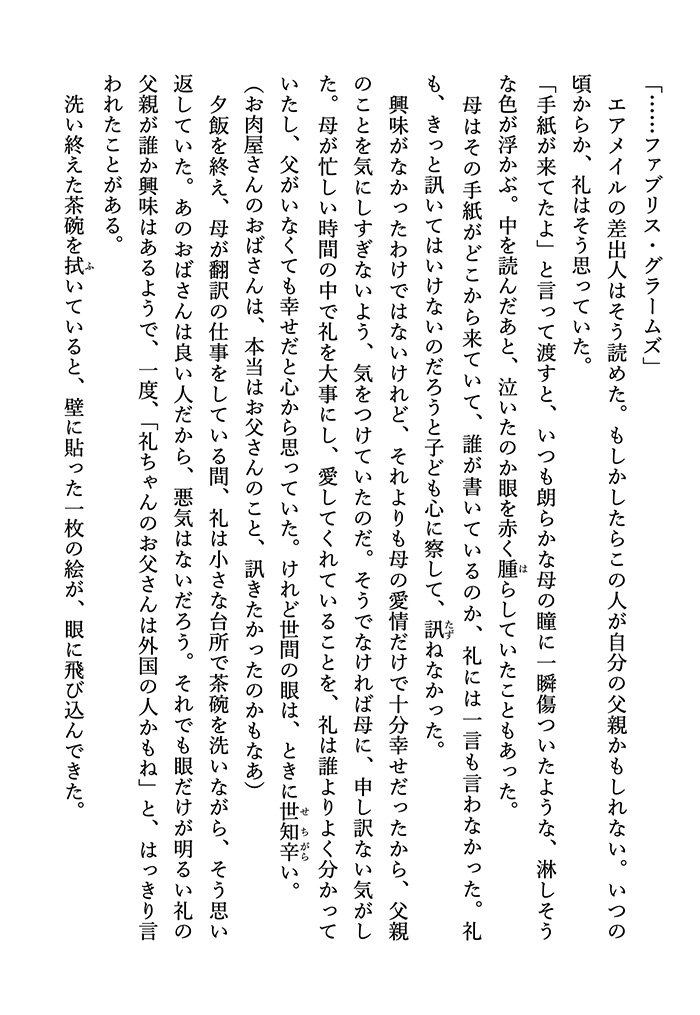 「……ファブリス・グラームズ」
　エアメイルの差出人はそう読めた。もしかしたらこの人が自分の父親かもしれない。いつの
頃からか、礼はそう思っていた。
「手紙が来てたよ」と言って渡すと、いつも朗らかな母の瞳に一瞬傷ついたような、淋しそう
な色が浮かぶ。中を読んだあと、泣いたのか眼を赤く腫らしていたこともあった。
　母はその手紙がどこから来ていて、誰が書いているのか、礼には一言も言わなかった。礼
も、きっと訊いてはいけないのだろうと子ども心に察して、訊ねなかった。
　興味がなかったわけではないけれど、それよりも母の愛情だけで十分幸せだったから、父親
のことを気にしすぎないよう、気をつけていたのだ。そうでなければ母に、申し訳ない気がし
た。母が忙しい時間の中で礼を大事にし、愛してくれていることを、礼は誰よりよく分かって
いたし、父がいなくても幸せだと心から思っていた。けれど世間の眼は、ときに世知辛い。
（お肉屋さんのおばさんは、本当はお父さんのこと、訊きたかったのかもなあ）
　夕飯を終え、母が翻訳の仕事をしている間、礼は小さな台所で茶碗を洗いながら、そう思い
返していた。あのおばさんは良い人だから、悪気はないだろう。それでも眼だけが明るい礼の
父親が誰か興味はあるようで、一度、「礼ちゃんのお父さんは外国の人かもね」と、はっきり言
われたことがある。
　洗い終えた茶碗を拭いていると、壁に貼った一枚の絵が、眼に飛び込んできた。